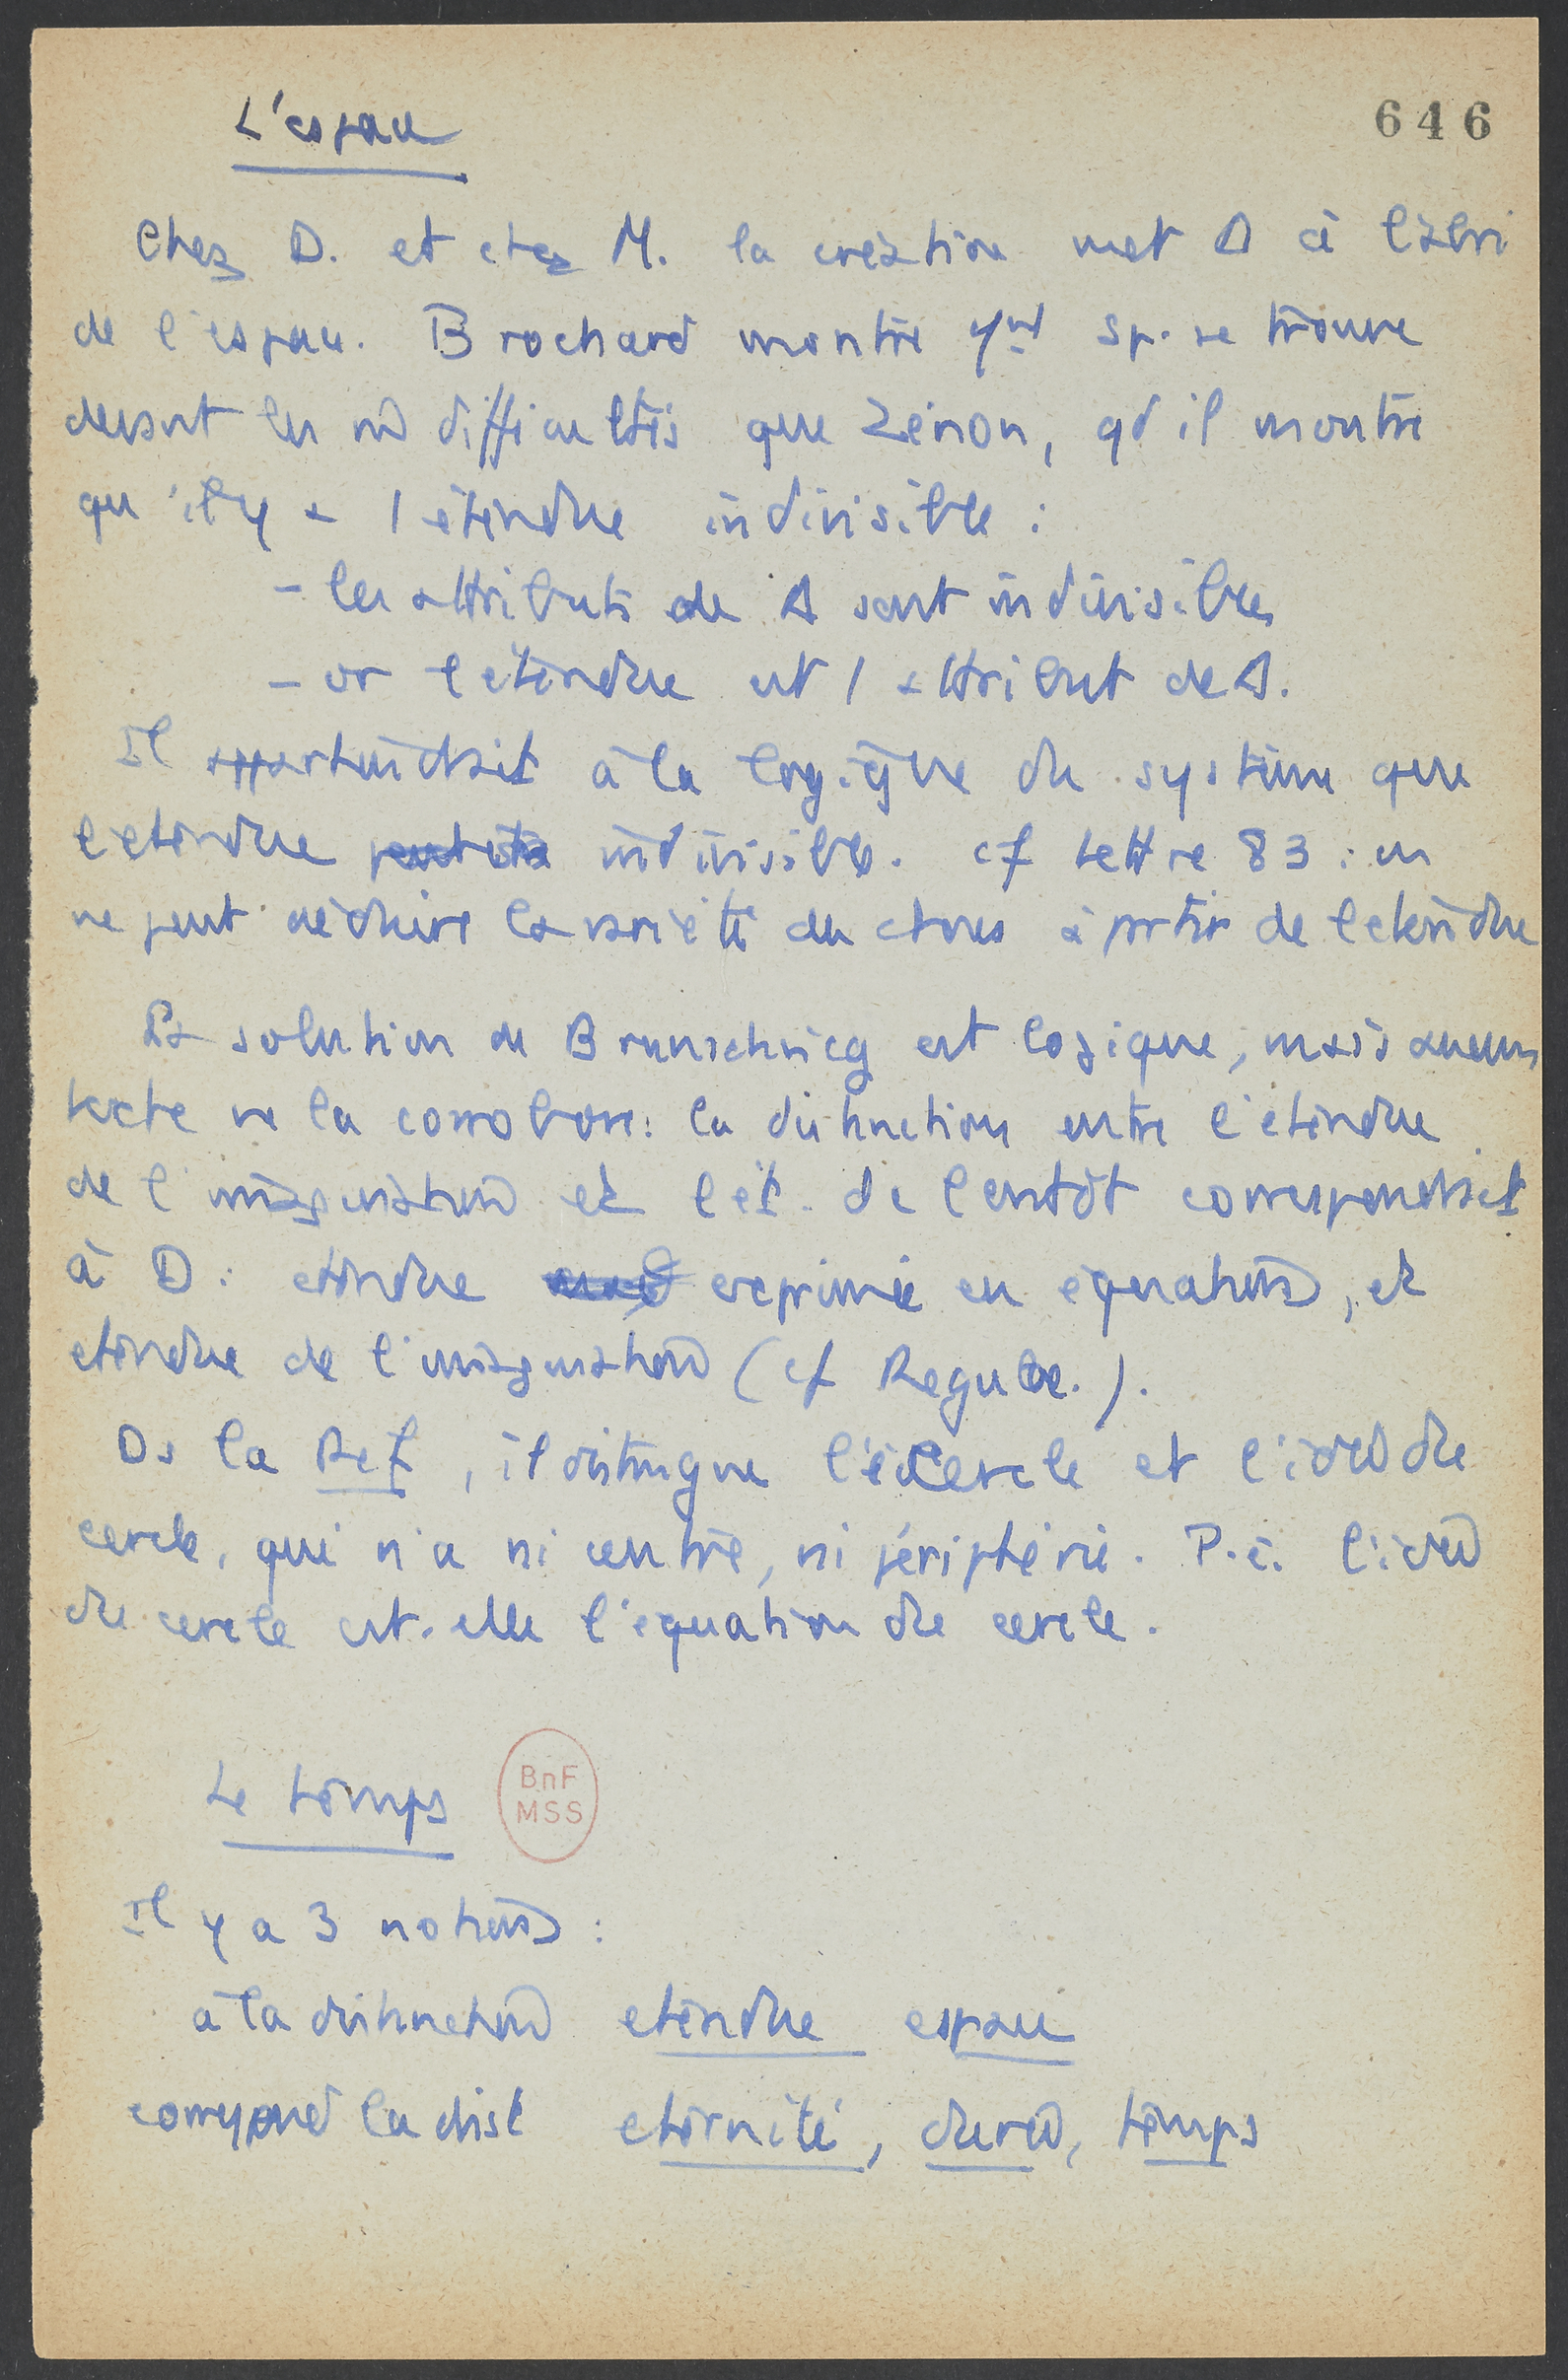 L'espace
646
Chez D. et chez M. la création met Δ à l'abri
de l'espace. Brochard montre qd Sp. se trouve
devant les m difficultés que Zénon, qd il montre
qu'il y a 1 étendue indivisible :
- les attributs de Δ sont indivisibles
- or l'étendue est 1 attribut de Δ.
Il appartiendrait à la logique du système que
l'étendue indivisible. cf Lettre 83 : on
ne peut déduire la variété des choses à partir de l'étendue
La solution de Brunschvicg est logique, mais aucun
texte ne la corrobore : la distinction entre l'étendue
de l'imagination et l'ét. de l'entdt correspondrait
à D : étendue exprimée en équations, et
étendue de l'imagination (cf Regulae.).
Ds la Ref, il distingue le cercle et l'idée du
cercle, qui n'a ni centre, ni périphérie. P.ê. l'idée
du cercle est-elle l'équation du cercle.
Le temps
BnF
MSS
Il y a 3 notions :
à la distinction étendue espace
correspond la dist éternité, durée, temps